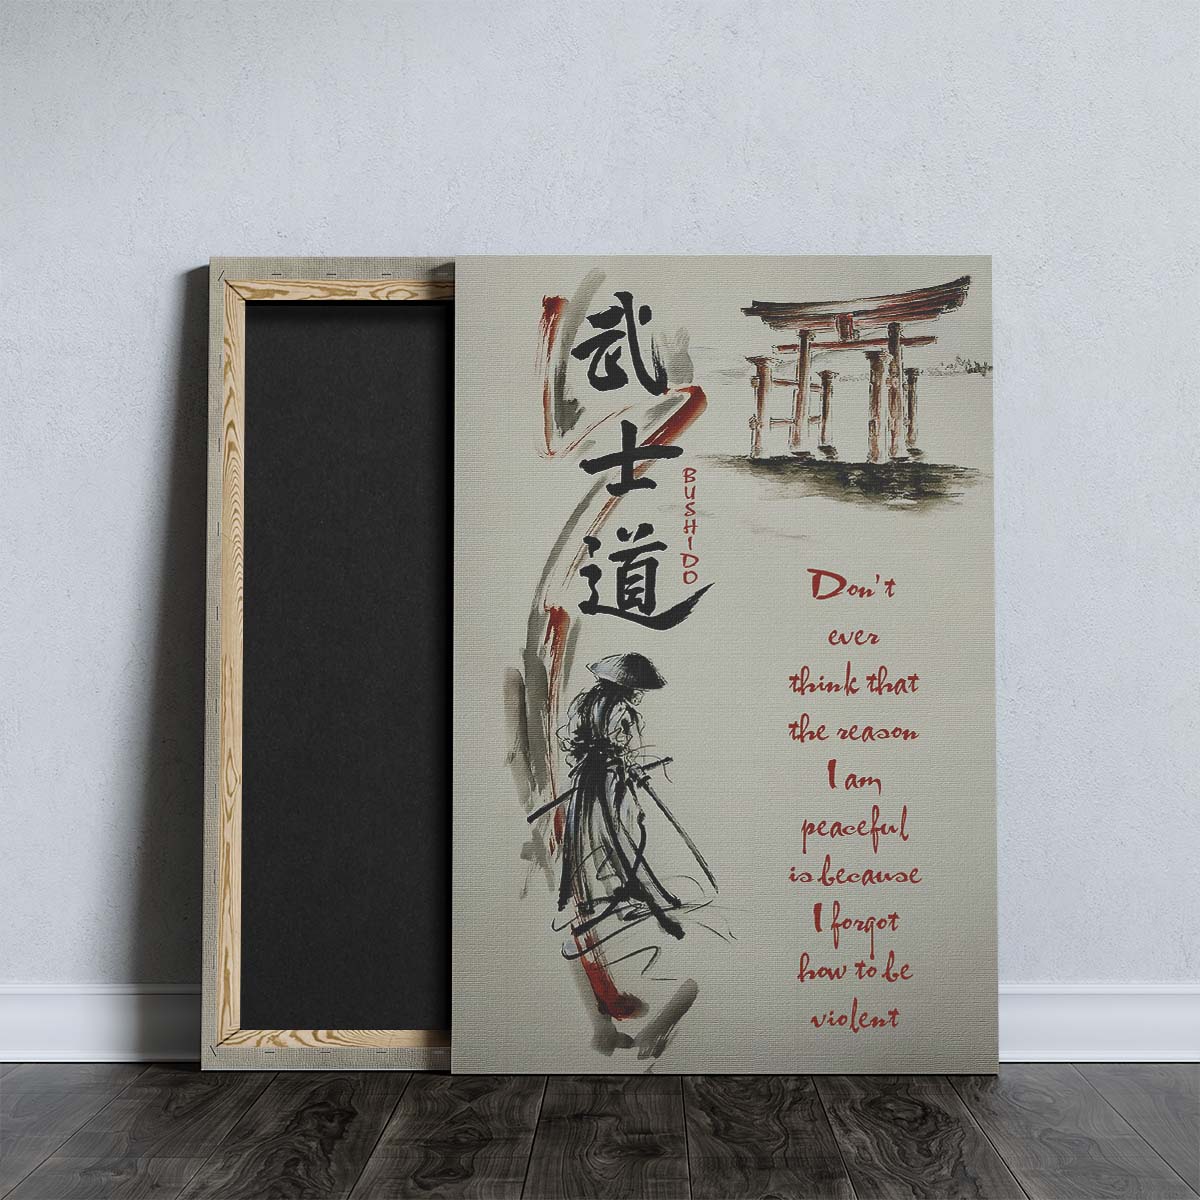 武士道
BUSHIDO
Don't
ever
think that
the reason
I am
peaceful
is because
I forgot
how to be
violent